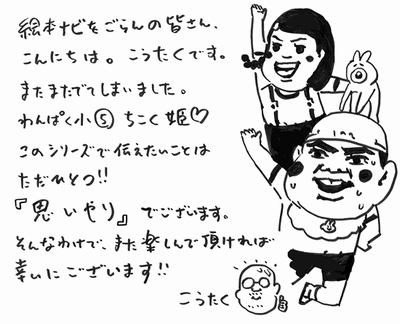 絵本ナビをごらんの皆さん、
こんにちは。こうたくです。
またまたでてしまいました。
わんぱく小⑤ ちこく姫♡
このシリーズで伝えたいことは
ただひとつ!!
『思いやり』でございます。
そんなわけで、また楽しんで頂ければ
幸いにございます!!
こうたく